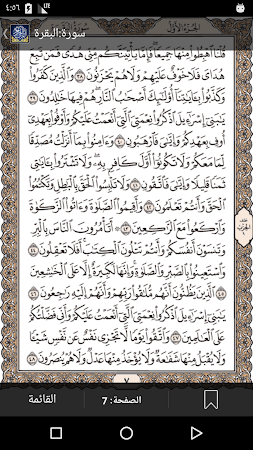 ٤:٥٦
سورة:البقرة
سورة البقرة
الجزء الأول
قُلْنَا ٱهْبِطُوا۟ مِنْهَا جَمِيعًا فَإِمَّا يَأْتِيَنَّكُم مِّنِّى هُدًى فَمَن تَبِعَ
هُدَاىَ فَلَا خَوْفٌ عَلَيْهِمْ وَلَا هُمْ يَحْزَنُونَ ٣٨ وَٱلَّذِينَ كَفَرُوا۟
وَكَذَّبُوا۟ بِـَٔايَـٰتِنَآ أُو۟لَـٰٓئِكَ أَصْحَـٰبُ ٱلنَّارِ هُمْ فِيهَا خَـٰلِدُونَ ٣٩
يَـٰبَنِىٓ إِسْرَٰٓءِيلَ ٱذْكُرُوا۟ نِعْمَتِىَ ٱلَّتِىٓ أَنْعَمْتُ عَلَيْكُمْ وَأَوْفُوا۟ بِعَهْدِىٓ
أُوفِ بِعَهْدِكُمْ وَإِيَّـٰىَ فَٱرْهَبُونِ ٤٠ وَءَامِنُوا۟ بِمَآ أَنزَلْتُ مُصَدِّقًا
لِّمَا مَعَكُمْ وَلَا تَكُونُوٓا۟ أَوَّلَ كَافِرٍۭ بِهِۦ وَلَا تَشْتَرُوا۟ بِـَٔايَـٰتِى
ثَمَنًا قَلِيلًا وَإِيَّـٰىَ فَٱتَّقُونِ ٤١ وَلَا تَلْبِسُوا۟ ٱلْحَقَّ بِٱلْبَـٰطِلِ وَتَكْتُمُوا۟
ٱلْحَقَّ وَأَنتُمْ تَعْلَمُونَ ٤٢ وَأَقِيمُوا۟ ٱلصَّلَوٰةَ وَءَاتُوا۟ ٱلزَّكَوٰةَ
وَٱرْكَعُوا۟ مَعَ ٱلرَّٰكِعِينَ ٤٣ أَتَأْمُرُونَ ٱلنَّاسَ بِٱلْبِرِّ
وَتَنسَوْنَ أَنفُسَكُمْ وَأَنتُمْ تَتْلُونَ ٱلْكِتَـٰبَ أَفَلَا تَعْقِلُونَ ٤٤
وَٱسْتَعِينُوا۟ بِٱلصَّبْرِ وَٱلصَّلَوٰةِ وَإِنَّهَا لَكَبِيرَةٌ إِلَّا عَلَى ٱلْخَـٰشِعِينَ
٤٥ ٱلَّذِينَ يَظُنُّونَ أَنَّهُم مُّلَـٰقُوا۟ رَبِّهِمْ وَأَنَّهُمْ إِلَيْهِ رَٰجِعُونَ ٤٦
يَـٰبَنِىٓ إِسْرَٰٓءِيلَ ٱذْكُرُوا۟ نِعْمَتِىَ ٱلَّتِىٓ أَنْعَمْتُ عَلَيْكُمْ وَأَنِّى فَضَّلْتُكُمْ
عَلَى ٱلْعَـٰلَمِينَ ٤٧ وَٱتَّقُوا۟ يَوْمًا لَّا تَجْزِى نَفْسٌ عَن نَّفْسٍ شَيْـًٔا
وَلَا يُقْبَلُ مِنْهَا شَفَـٰعَةٌ وَلَا يُؤْخَذُ مِنْهَا عَدْلٌ وَلَا هُمْ يُنصَرُونَ ٤٨
٧
القائمة
الصفحة: 7